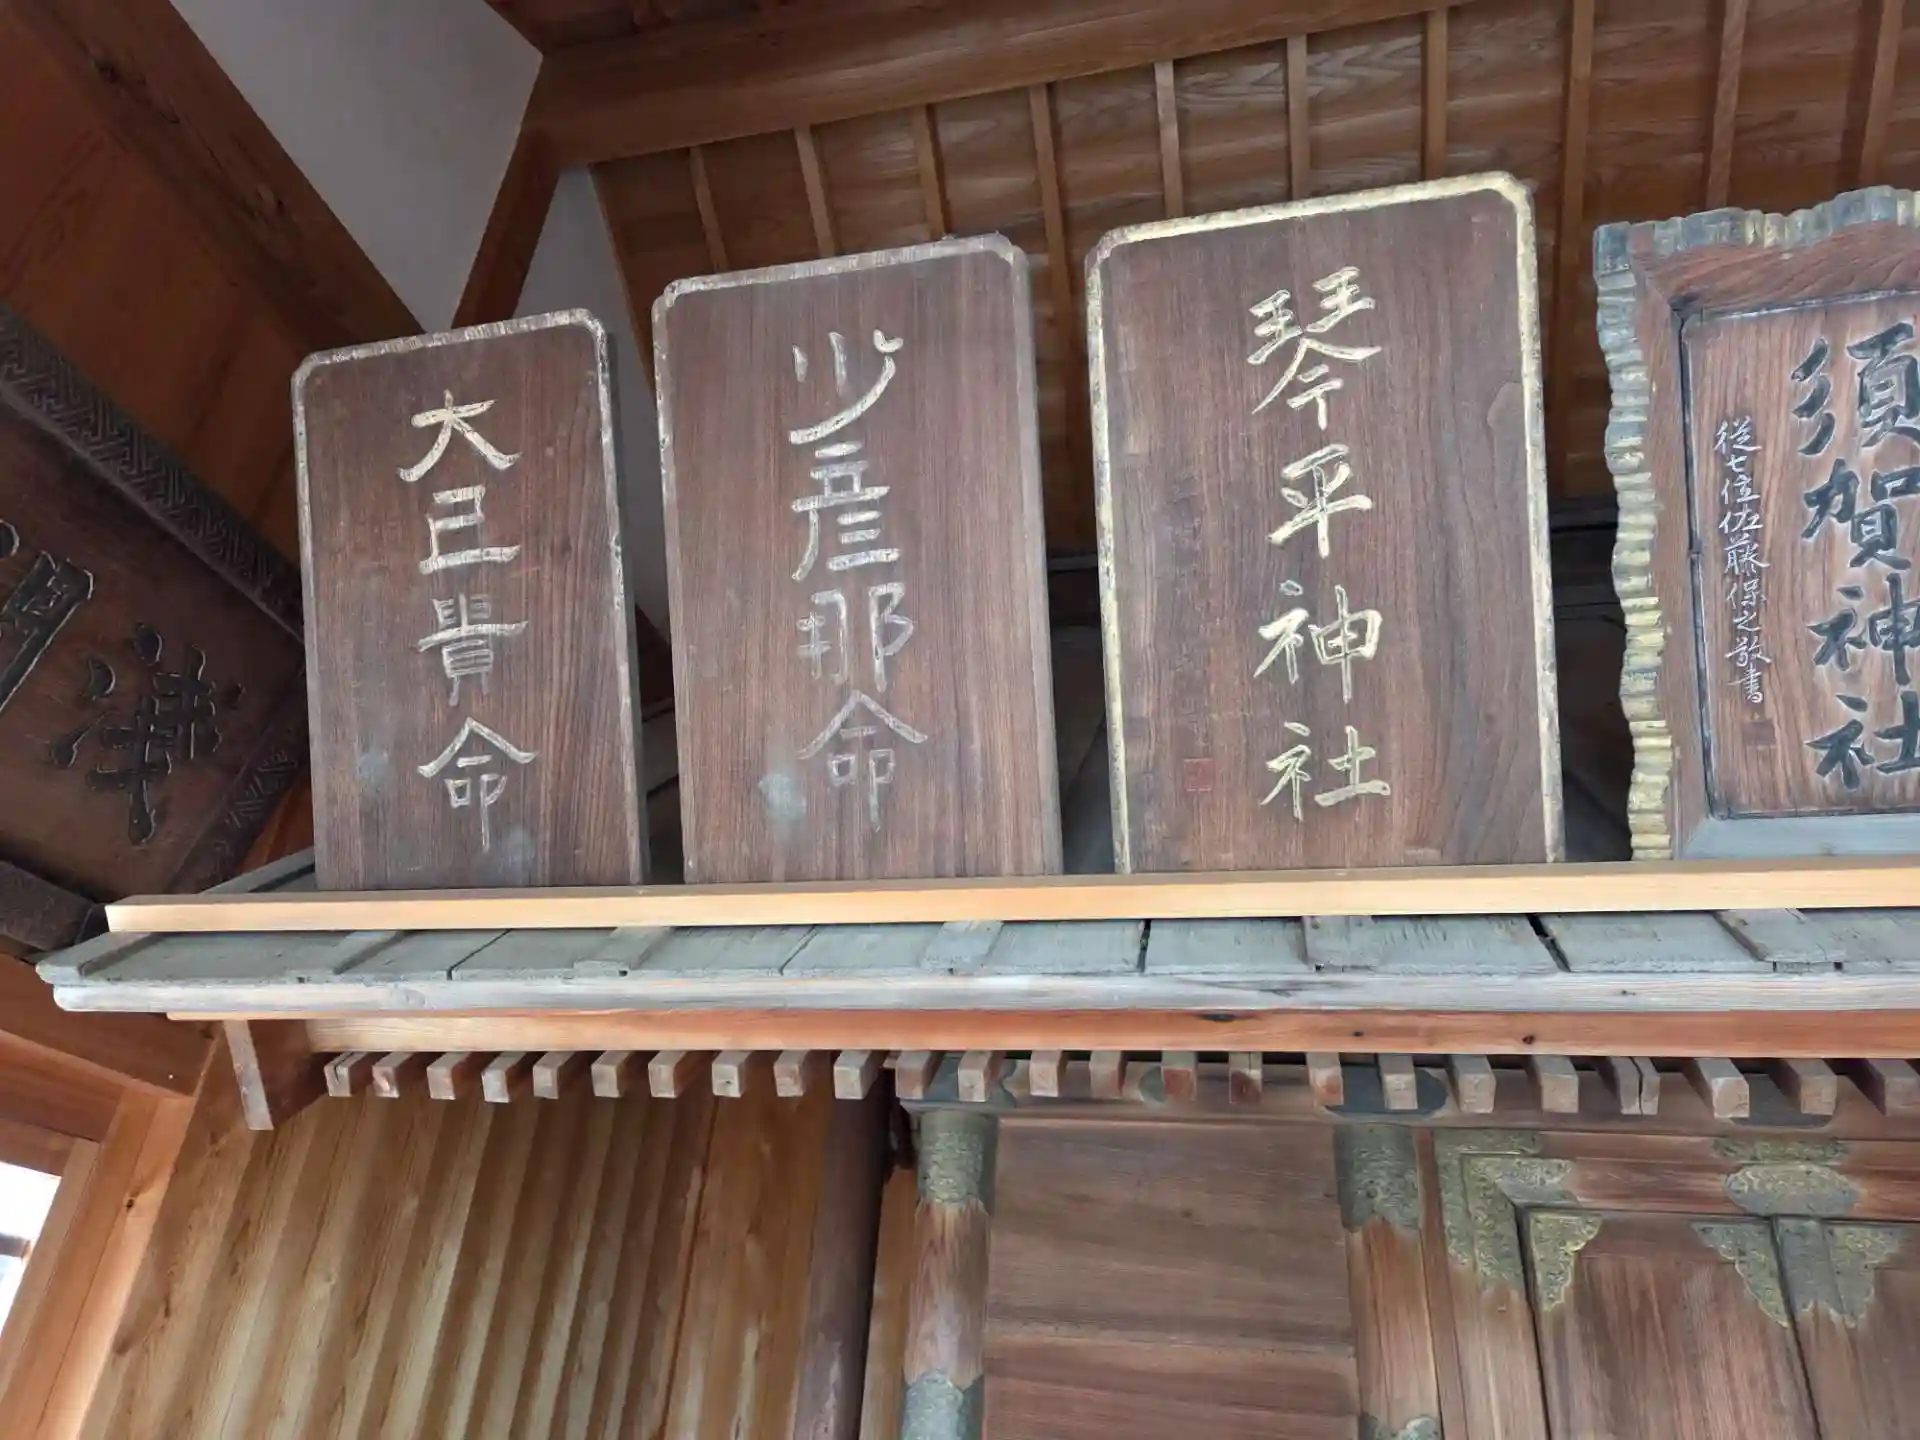 大己貴命
少彦那命
琴平神社
須賀神社
従七位佐藤保之敬書